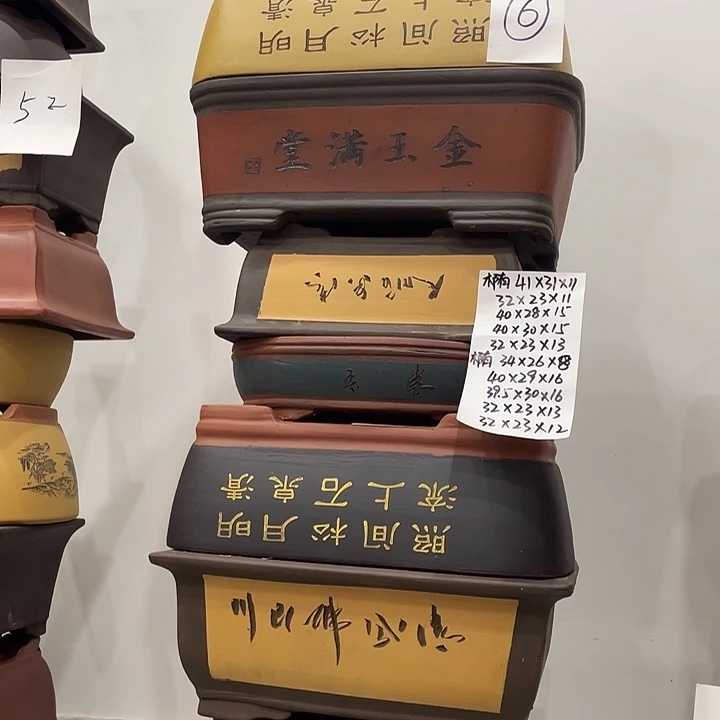 ⑥
52
明月松间照
清泉石上流
金玉满堂
椭 41×31×11
32×23×11
40×28×15
40×30×15
32×23×13
椭 34×26×8
40×29×16
39.5×30×16
32×23×13
32×23×12
明月松间照
清泉石上流